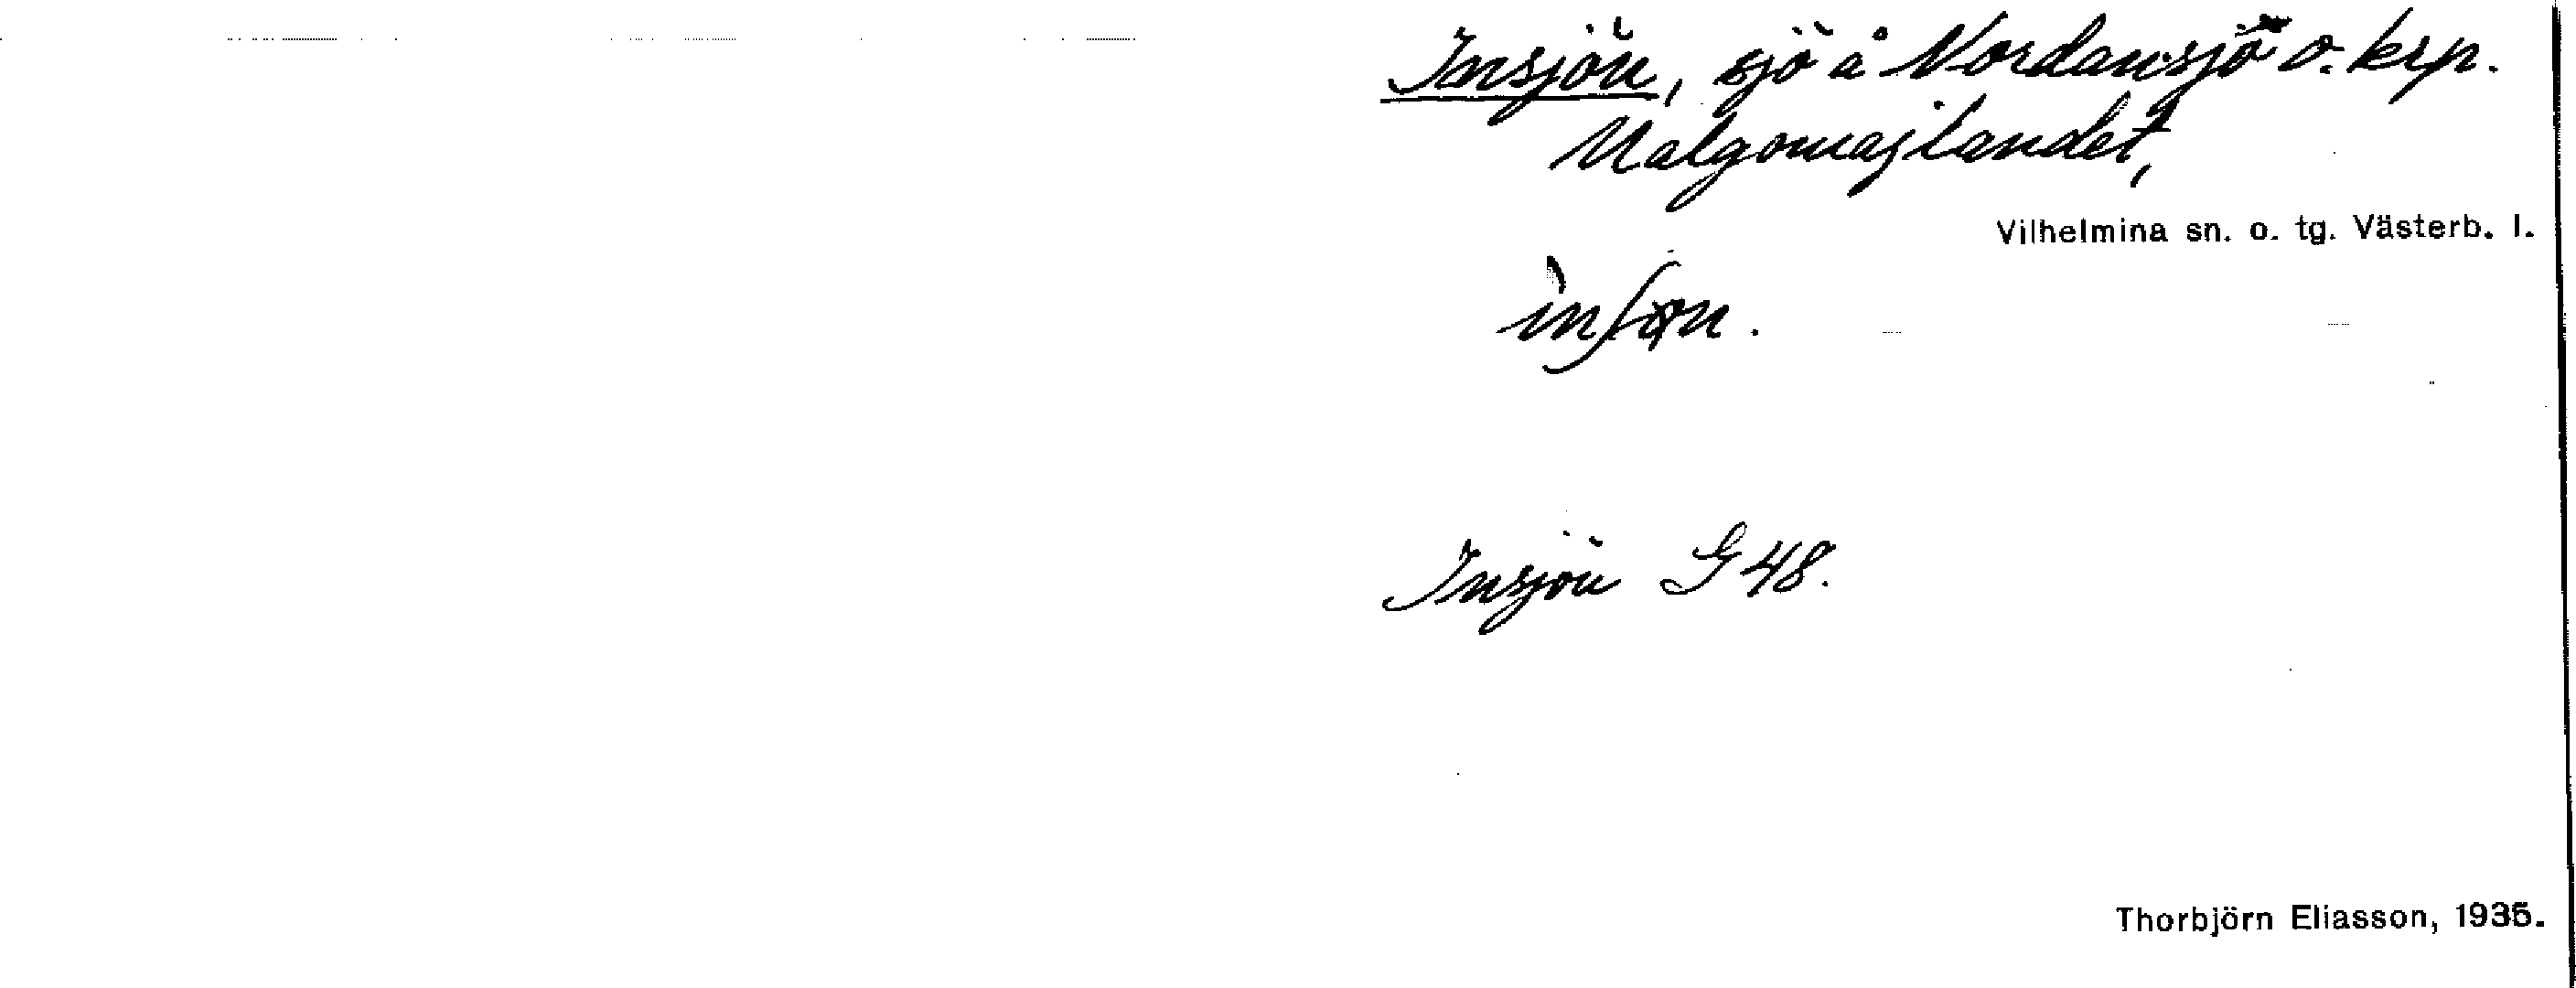 Insjön, sjö å Nordansjö o. krp.
Malgomajlandet,
Vilhelmina sn. o. tg. Västerb. l.
Insjön G 48.
Thorbjörn Eliasson, 1935.